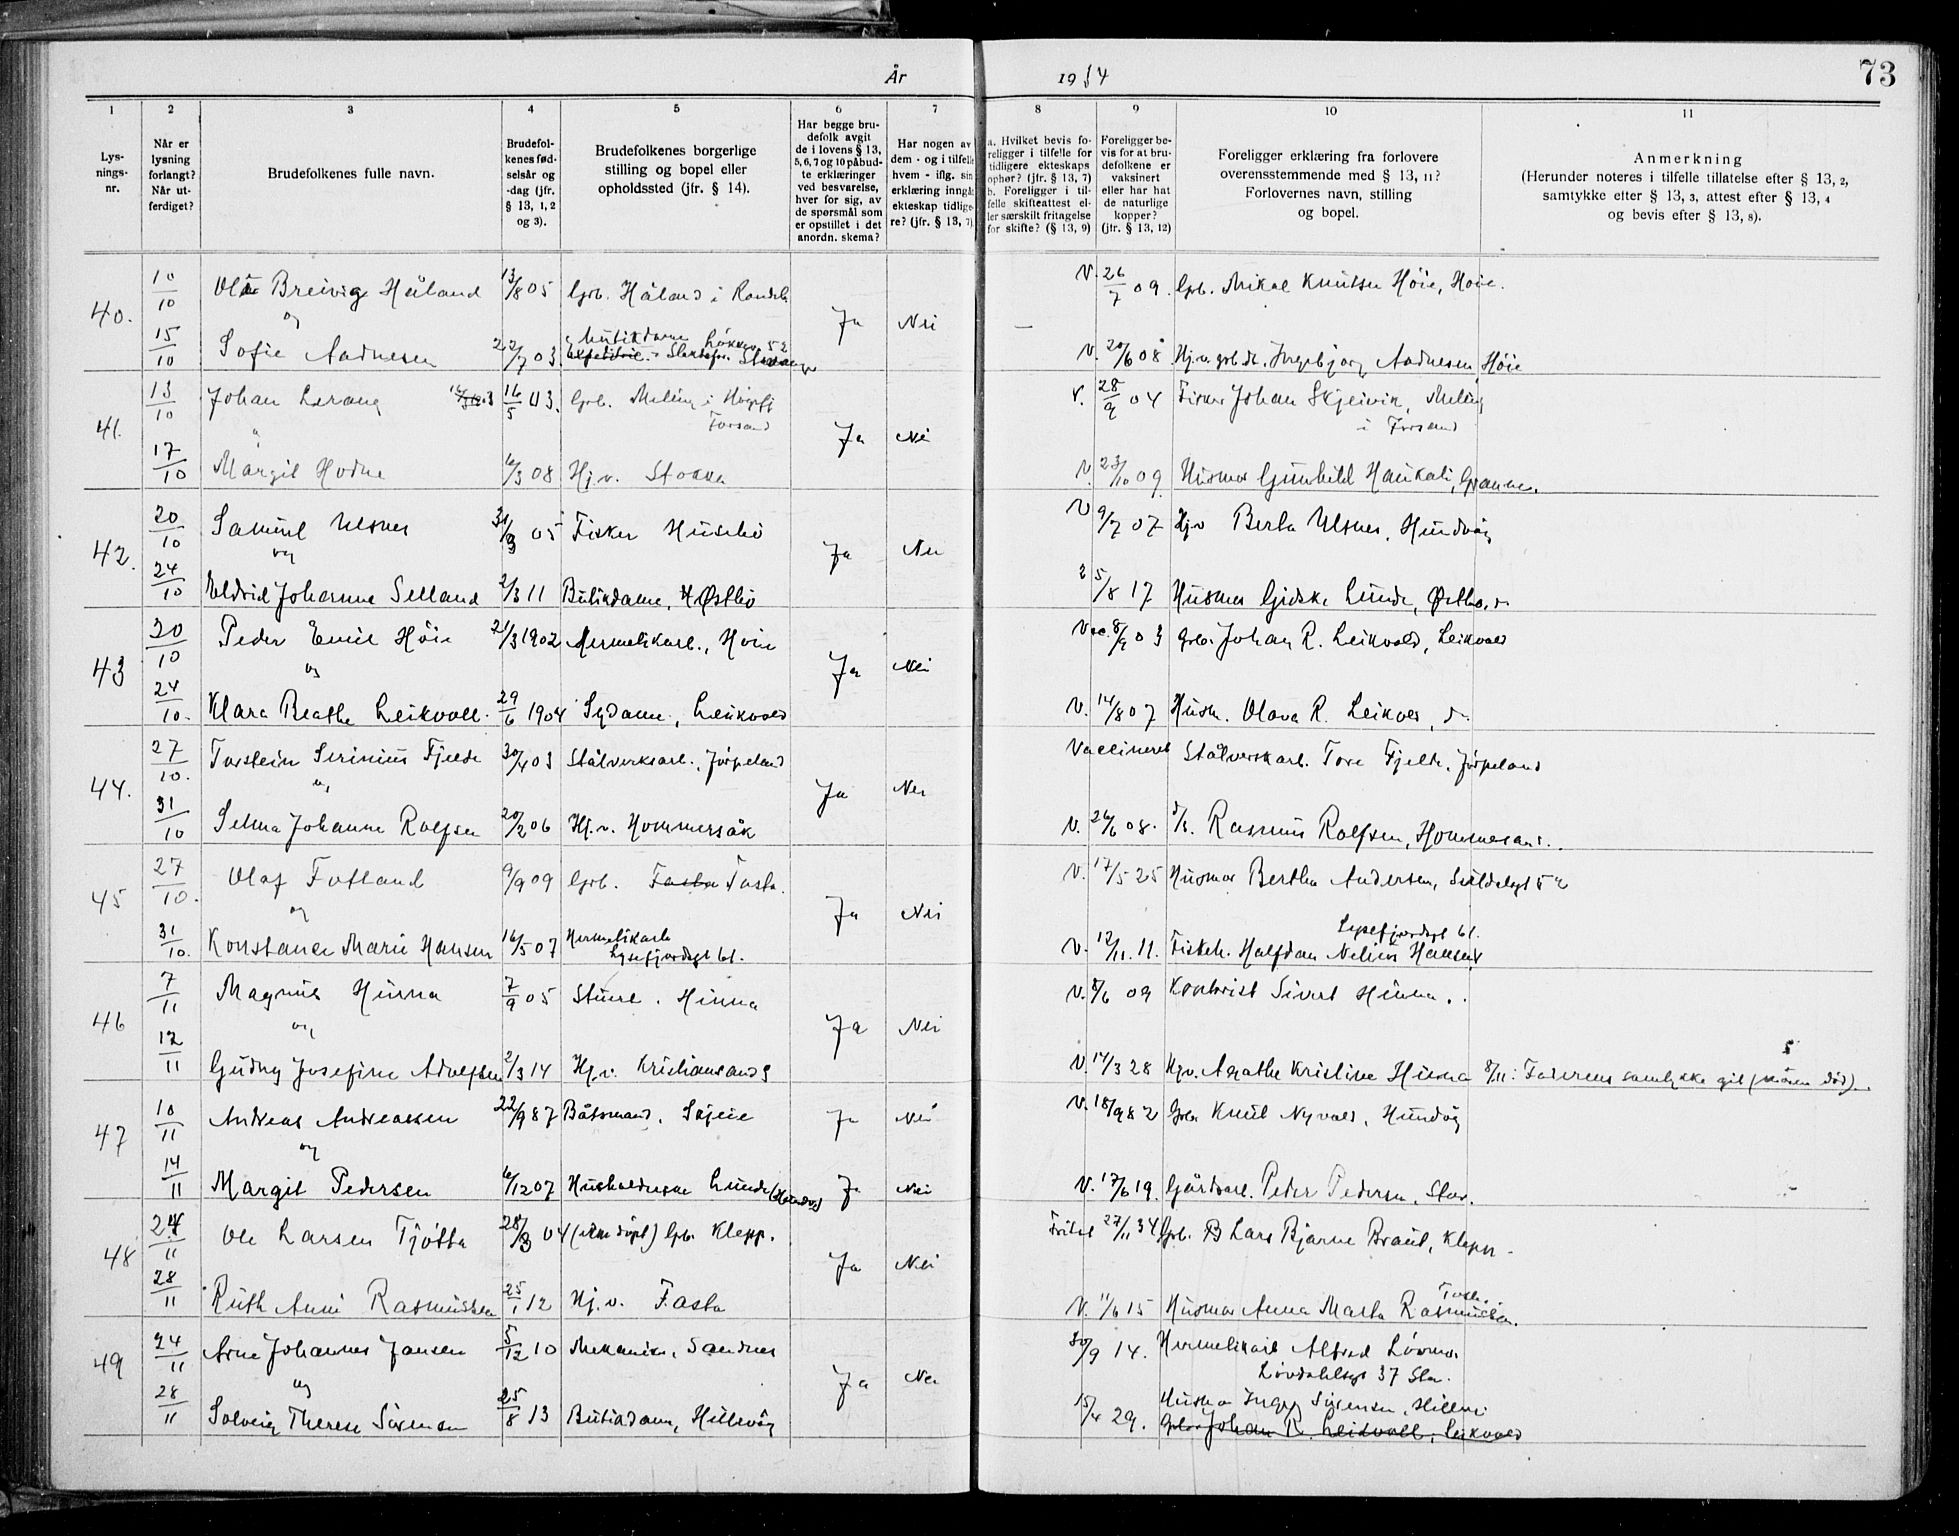 År 1934 73
1 2 3 4 5 6 7 8 9 10 11
Lys-
nings-
nr.
Når er
lysning
forlangt?
Når ut-
ferdiget?
Brudefolkenes fulle navn.
Brudefol-
kenes fød-
selsår og
-dag (jfr.
§ 13, 1, 2
og 3).
Brudefolkenes borgerlige
stilling og bopel eller
opholdssted (jfr. § 14).
Har begge bru-
defolk avgit
de i lovens § 13,
5, 6, 7 og 10 påbud-
te erklæringer
ved besvarelse,
hver for sig, av
de spørsmål som
er opstillet i det
anordn. skema?
Har nogen av
dem - og i tilfelle
hvem - iflg. sin
erklæring inngåt
ekteskap tidlige-
re? (jfr. § 13, 7)
a. Hvilket bevis fo-
religger i tilfelle for
tidligere ekteskaps
ophør? (jfr. § 13, 7)
b. Foreligger i til-
felle skifteattest el-
ler særskilt fritagelse
for skifte? (§ 13, 9)
Foreligger be-
vis for at bru-
defolkene er
vaksinert
eller har hat
de naturlige
kopper?
(jfr. § 13, 12)
Foreligger erklæring fra forlovere
overensstemmende med § 13, 11?
Forlovernes navn, stilling
og bopel.
Anmerkning
(Herunder noteres i tilfelle tillatelse efter § 13, 2,
samtykke efter § 13, 3, attest efter § 13, 4
og bevis efter § 13, 8).
40. 10/10 Ola Breivig Høiland 13/8 05 Grb. Håland i Ja Nei — V. 26/7 09. Grb. Mikal Knutsen Høie, Høie.
og
15/10 Sofie Aadnesen 22/7 03 Butikdame Løkkev. 52 V. 20/6 08 Hj.v. Ingebjorg Aadnesen Høie
41. 13/10 Johan Lerang 16/5 03. Grb. Meling i Høgsfj. Forsand Ja Nei V. 28/9 04 Fisker Johan Skjeivik, Meling
i Forsand
17/10 Margit Hodne 6/3 08 Hj.v. Stokka V. 23/10 09. Husmor Gunhild Haukali, Granne.
42. 20/10 Samuel Ulsnes 31/3 05 Fisker Husebø Ja Nei V 9/7 07 Hj.v Berta Ulsnes, Hundvåg
og
24/10 Eldrid Johanne Selland 2/3 11 Butikdame, Østbø 25/8 17 Husmor Gidske Lunde, Østbø.
43 20/10 Peder Emil Høie 21/3 1902 Hermetikarb., Høie Ja Nei Vac. 8/9 03 Grb. Johan R. Leikvold, Leikvold
og
24/10. Klara Beathe Leikvoll. 29/6 1904 Sydame, Leikvold V. 14/8 07 Husm. Olava R. Leikvol, d.
44. 27/10. Torstein Serinius Fjelde 30/4 03 Stålverksarb., Jørpeland Ja Nei Vaccineret Stålverksarb. Tore Fjelde, Jørpeland
og
31/10 Selma Johanne Rolfsen 20/2 06 Hj.v. Hommersåk V. 26/6 08. Rasmus Rolfsen, Hommersand.
45 27/10. Olaf Fotland 9/9 09 Grb. Tasta Tasta. Ja Nei V. 17/5 25 Husmor Bertha Andersen, Suldalsgt 52
og
31/10. Konstance Marie Hansen 16/5 07 Hermetikarb. Lysefjordsgt 61. V. 12/11. 11. Fiskeh. Halfdan Nelius Hansen
Lysefjordsgt 61.
46 7/11 Magnus Hinna 7/9 05 Stuert. Hinna Ja Nei V. 8/6 09 Kontorist Sivert Hinna.
og
12/11 Gudny Josefine Adolfsen 2/3 14 Hj.v. Kristiansand S V. 14/3 28 Hj.v. Agathe Kristine Hinna 8/11: Faderens samtykke git (moren død).
47 10/11 Andreas Andreassen 22/9 87 Båtsmand, Skjeie Ja Nei V. 18/9 82 Grb. Knut Nyvold, Hundvåg
og
14/11 Margit Pedersen 6/12 07 Husholderske Lunde (Hundv.) Ja Nei V. 17/6 19. Gårdsarb. Peder Pedersen, Stav.
48 24/11 Ole Larsen Tjøtta 28/3 04 Grb. Klepp. Ja Nei Fritat 27/11 34 Grb. Lars Bjarne Braut, Klepp.
28/11 Ruth Anni Rasmussen 25/1 12 Hj.v. Tasta V. 11/6 15 Husmor Anna Marta Rasmussen.
Tasta.
49 24/11 Arne Johannes Jansen 5/12 10 Mekaniker, Sandnes Ja Nei 30/9 14. Hermetikarb Alfred
Løvdahlsgt 37 Stav.
og
28/11 Solveig Therese Sørensen 25/8 13 Butikdame, Hillevåg 15/4 29. Husmor Inga Sørensen, Hillev.
Grb. Johan R. Leikvoll, Leikvold